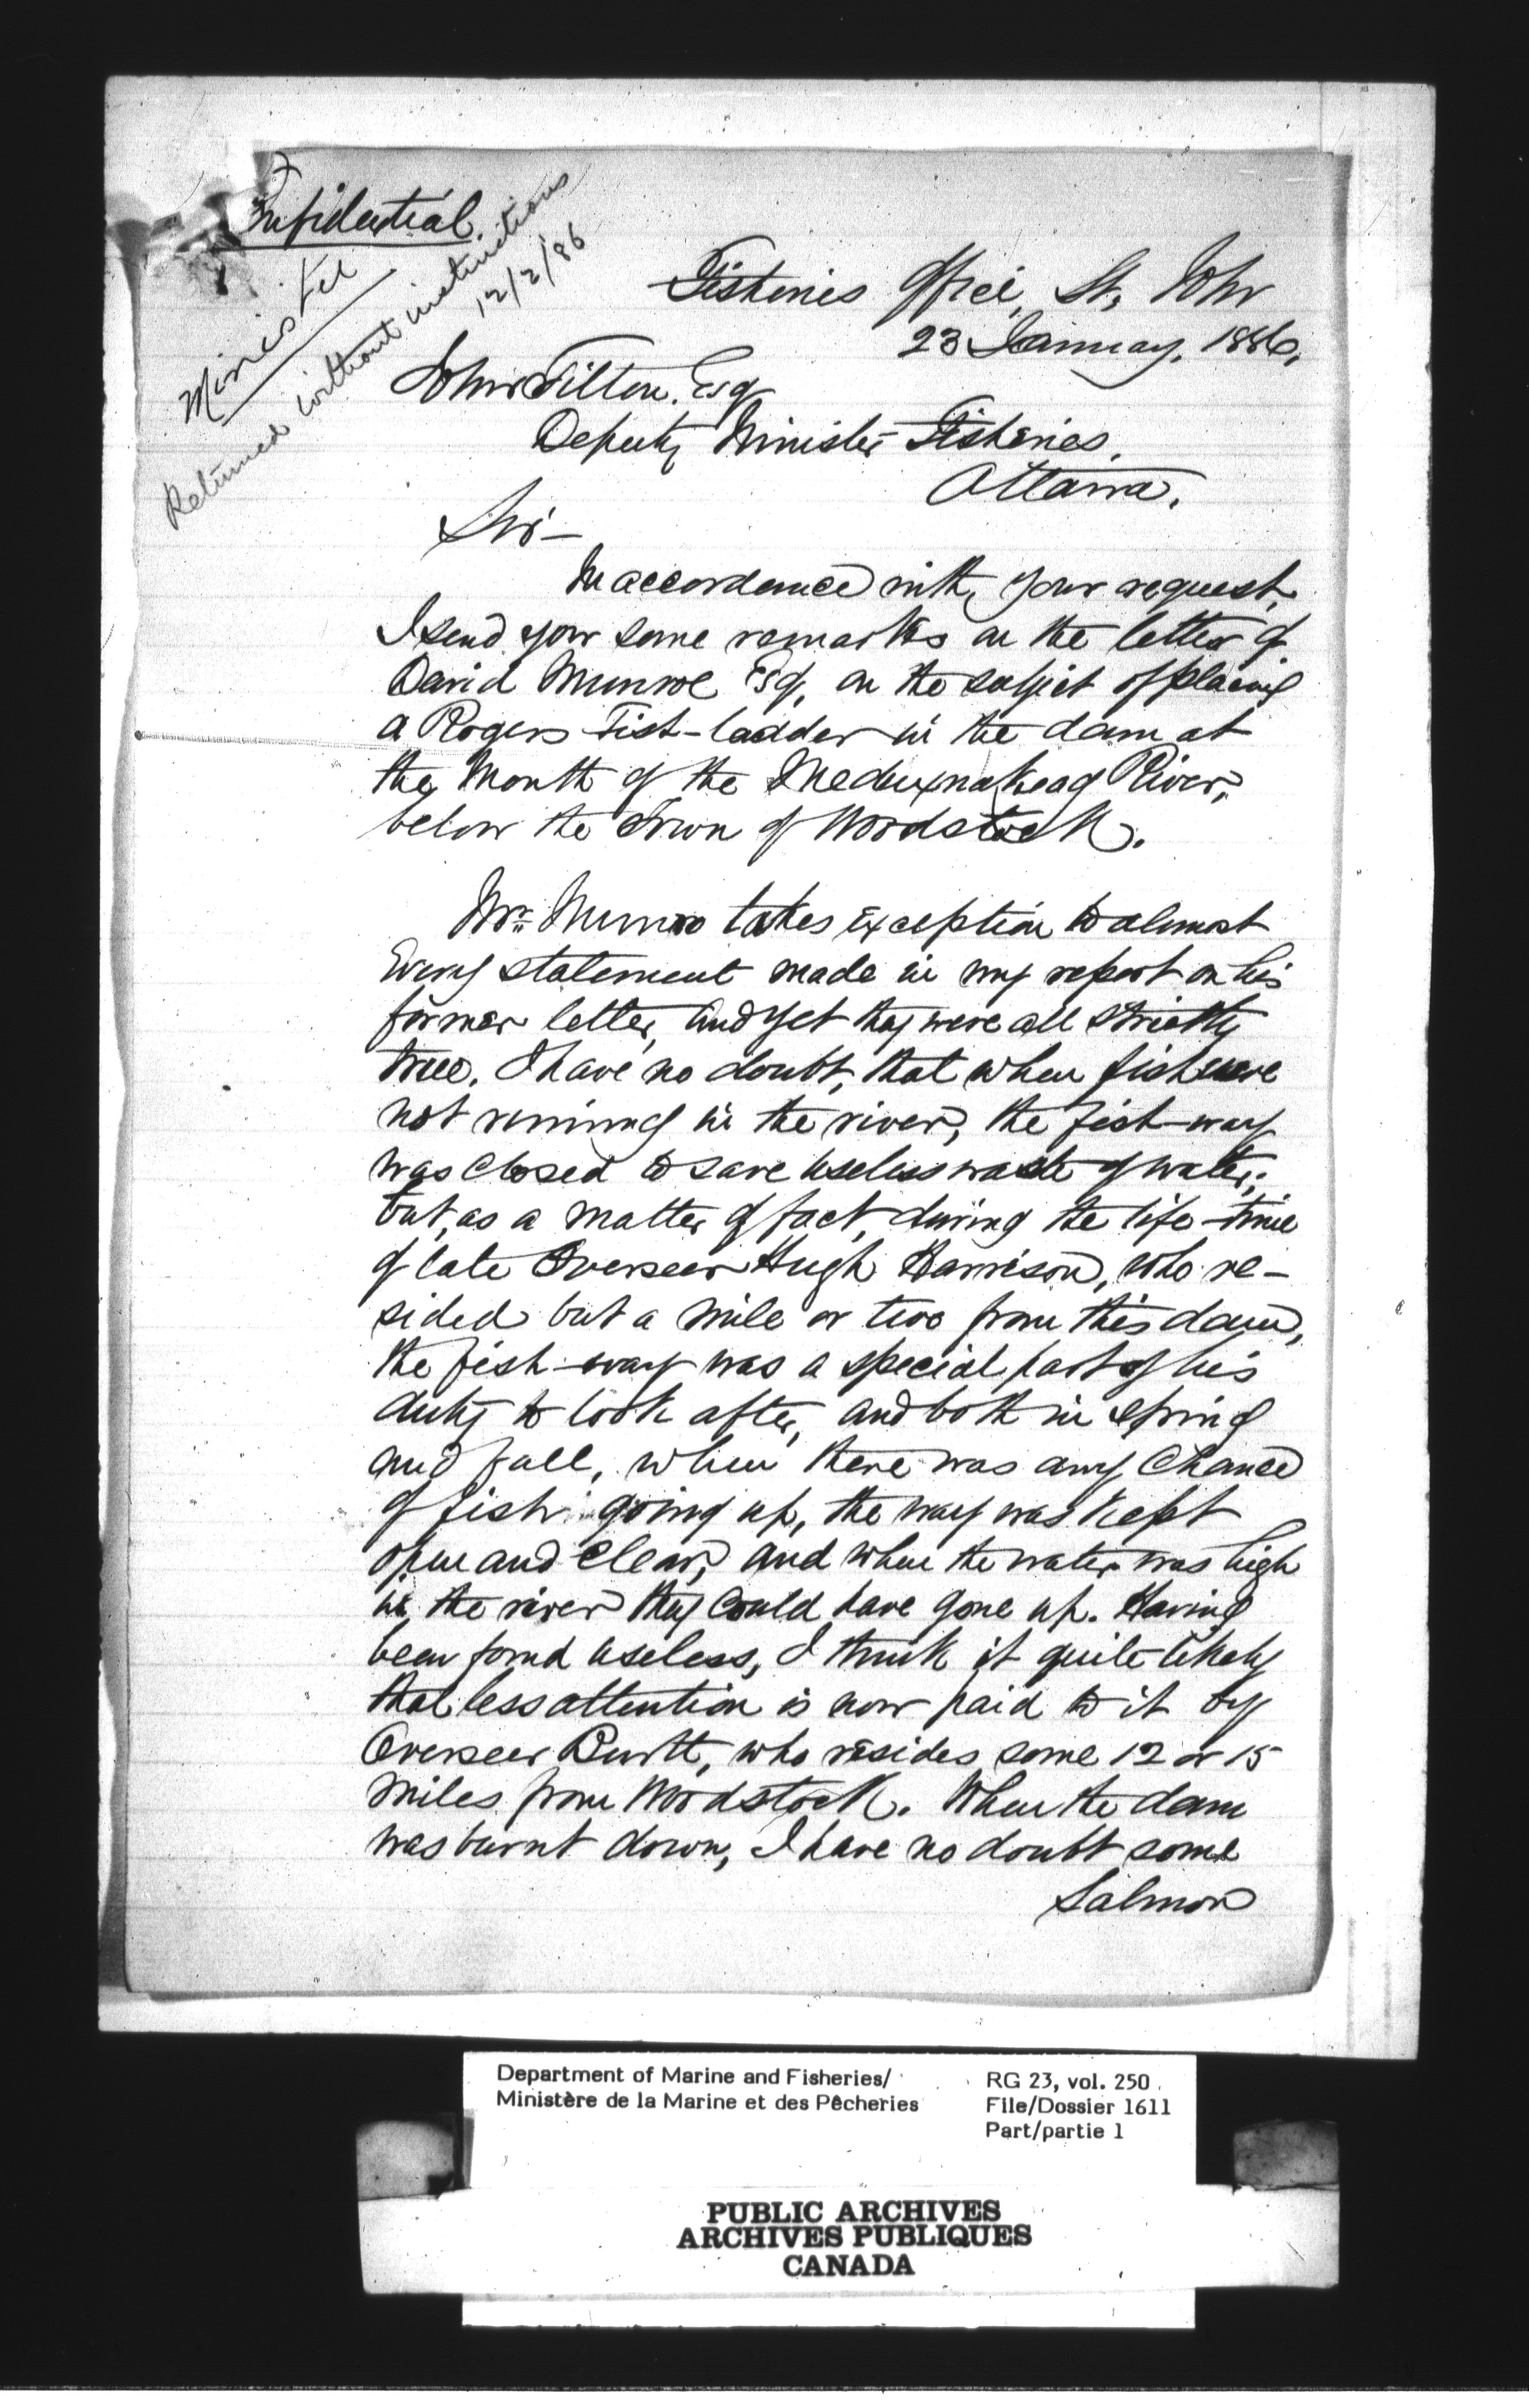 Confidential.
Minister
Returned without instructions
12/2/86
Fisheries Office, St, John
23 January. 1886,
John Tilton. Esq
Deputy Minister Fisheries.
Ottawa.
Sir—
In accordance with, your request,
I send you some remarks on the letter of
David Munroe Esq, on the subject of placing
a Rogers Fish-ladder in the dam at
the Mouth of the Meduxnakeag River,
below the Town of Woodstock.
Mr. Munro takes exception to almost
Every statement made in my report on his
former letter, and yet they were all strictly
true. I have no doubt, that when fish were
not running in the river, the fish-way
was closed to save useless waste of water;
but, as a matter of fact, during the life-time
of late Overseer Hugh Harrison, who re-
sided but a mile or two from this dam,
the fish-way was a special part of his
duty to look after, and both in spring
and fall, when there was any chance
of fish going up, the way was kept
open and clear, and when the water was high
in the river they could have gone up. Having
been found useless, I think it quite likely
that less attention is now paid to it by
Overseer Burtt, who resides some 12 or 15
miles from Woodstock. When the dam
was burnt down, I have no doubt some
Salmon
Department of Marine and Fisheries/
Ministère de la Marine et des Pêcheries
RG 23, vol. 250
File/Dossier 1611
Part/partie 1
PUBLIC ARCHIVES
ARCHIVES PUBLIQUES
CANADA